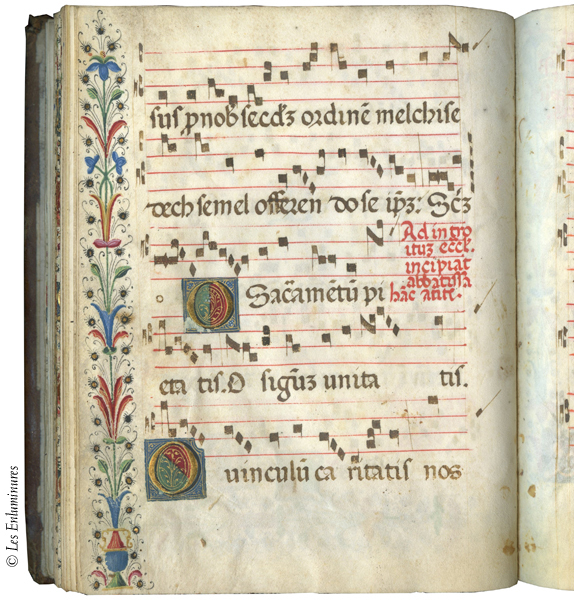 sus ꝓ nob secdꝫ ordinē melchise
dech semel offeren do se ip̄ꝫ: Scꝫ
Ad intro
ituꝫ eccł.
incipiat
abbatissa
hāc atiē.
O Sacāmētū pi
eta tis. O signūꝫ unita tis.
O uinculū ca ritatis nos
© Les Enluminures